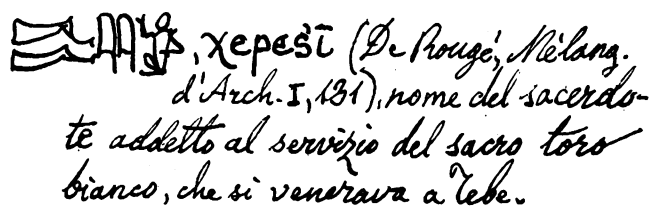 , χepešī (De Rougé, Mélang.
d'Arch. I, 131), nome del sacerdo-
te addetto al servizio del sacro toro
bianco, che si venerava a Tebe.